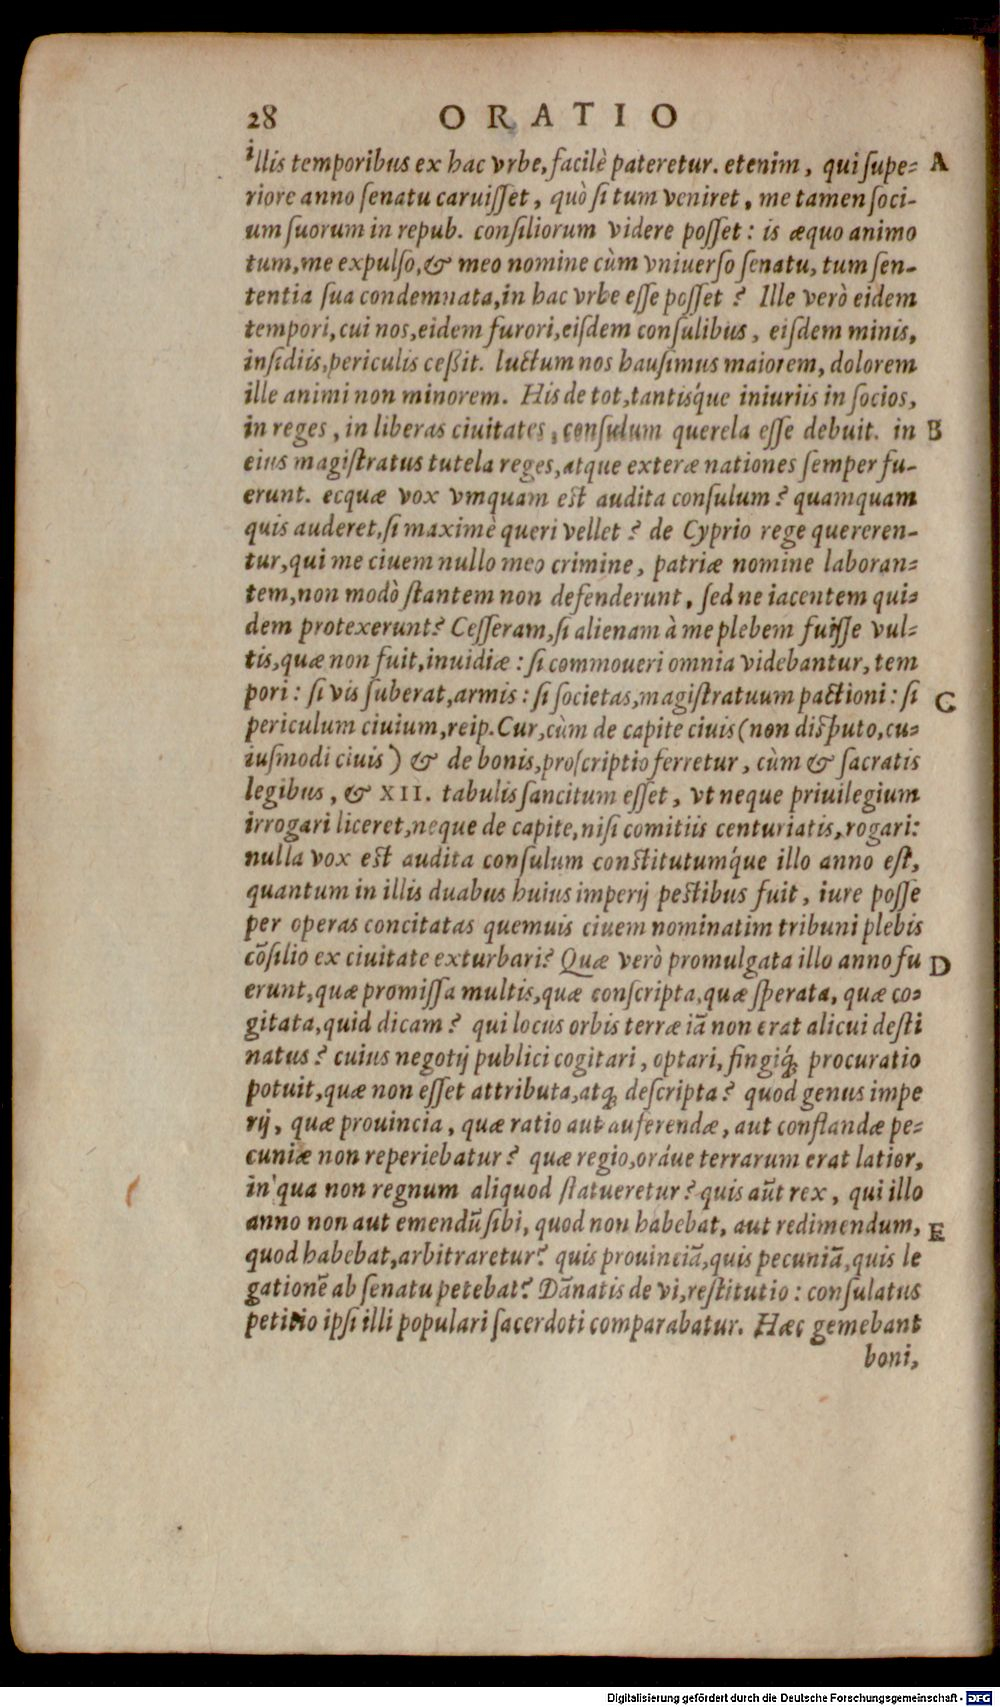 28 ORATIO
illis temporibus ex hac vrbe, facilè pateretur. etenim, qui supe- A
riore anno senatu caruisset, quò si tum veniret, me tamen soci-
um suorum in repub. consiliorum videre posset: is æquo animo
tum, me expulso, & meo nomine cùm vniuerso senatu, tum sen-
tentia sua condemnata, in hac vrbe esse posset? Ille verò eidem
tempori, cui nos, eidem furori, eisdem consulibus, eisdem minis,
insidiis, periculis ceßit. luctum nos hausimus maiorem, dolorem
ille animi non minorem. His de tot, tantisq́ue iniuriis in socios,
in reges, in liberas ciuitates, consulum querela esse debuit. in B
eius magistratus tutela reges, atque exteræ nationes semper fu-
erunt. ecquæ vox vmquam est audita consulum? quamquam
quis auderet, si maximè queri vellet? de Cyprio rege quereren-
tur, qui me ciuem nullo meo crimine, patriæ nomine laboran-
tem, non modò stantem non defenderunt, sed ne iacentem qui-
dem protexerunt? Cesseram, si alienam à me plebem fuisse vul-
tis, quæ non fuit, inuidiæ: si commoueri omnia videbantur, tem
pori: si vis suberat, armis: si societas, magistratuum pactioni: si C
periculum ciuium, reip. Cur, cùm de capite ciuis (non disputo, cu-
iusmodi ciuis) & de bonis, proscriptio ferretur, cùm & sacratis
legibus, & XII. tabulis sancitum esset, vt neque priuilegium
irrogari liceret, neque de capite, nisi comitiis centuriatis, rogari:
nulla vox est audita consulum constitutumq́ue illo anno est,
quantum in illis duabus huius imperij pestibus fuit, iure posse
per operas concitatas quemuis ciuem nominatim tribuni plebis
cõsilio ex ciuitate exturbari? Quæ verò promulgata illo anno fu D
erunt, quæ promissa multis, quæ conscripta, quæ sperata, quæ co-
gitata, quid dicam? qui locus orbis terræ iã non erat alicui desti
natus? cuius negotij publici cogitari, optari, fingiq́; procuratio
potuit, quæ non esset attributa, atq; descripta? quod genus impe
rij, quæ prouincia, quæ ratio aut auferendæ, aut conflandæ pe-
cuniæ non reperiebatur? quæ regio, oráue terrarum erat latior,
in qua non regnum aliquod statueretur? quis aũt rex, qui illo
anno non aut emendũ sibi, quod non habebat, aut redimendum, E
quod habebat, arbitraretur? quis prouinciã, quis pecuniã, quis le
gationẽ ab senatu petebat? Dãnatis de vi, restitutio: consulatus
petitio ipsi illi populari sacerdoti comparabatur. Hæc gemebant
boni,
Digitalisierung gefördert durch die Deutsche Forschungsgemeinschaft - DFG